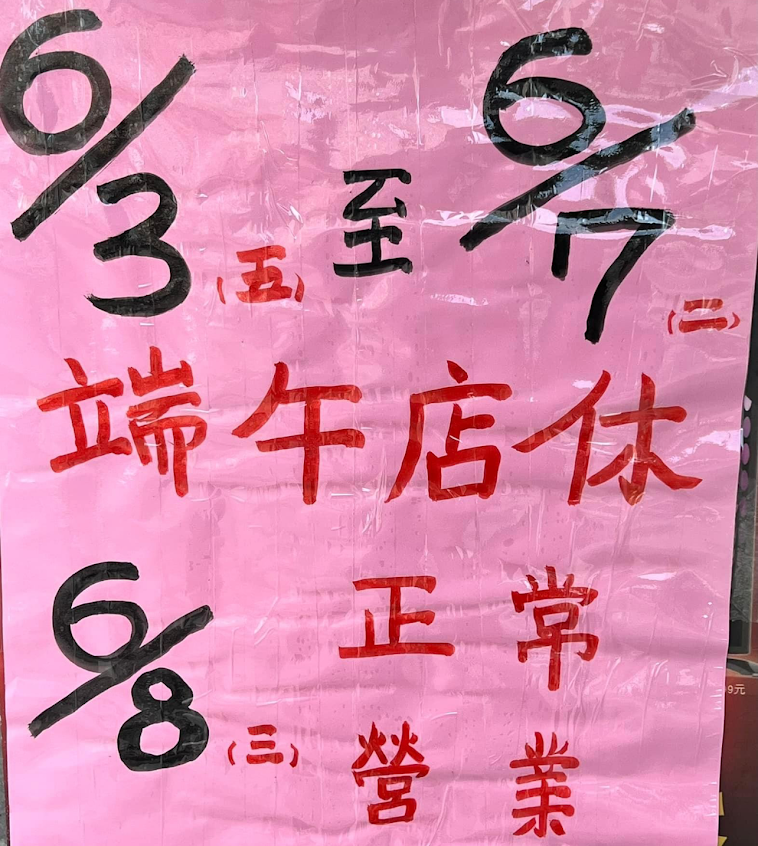 6/3(五)至6/7(二)
端午店休
6/8(三)正常
營業
9元